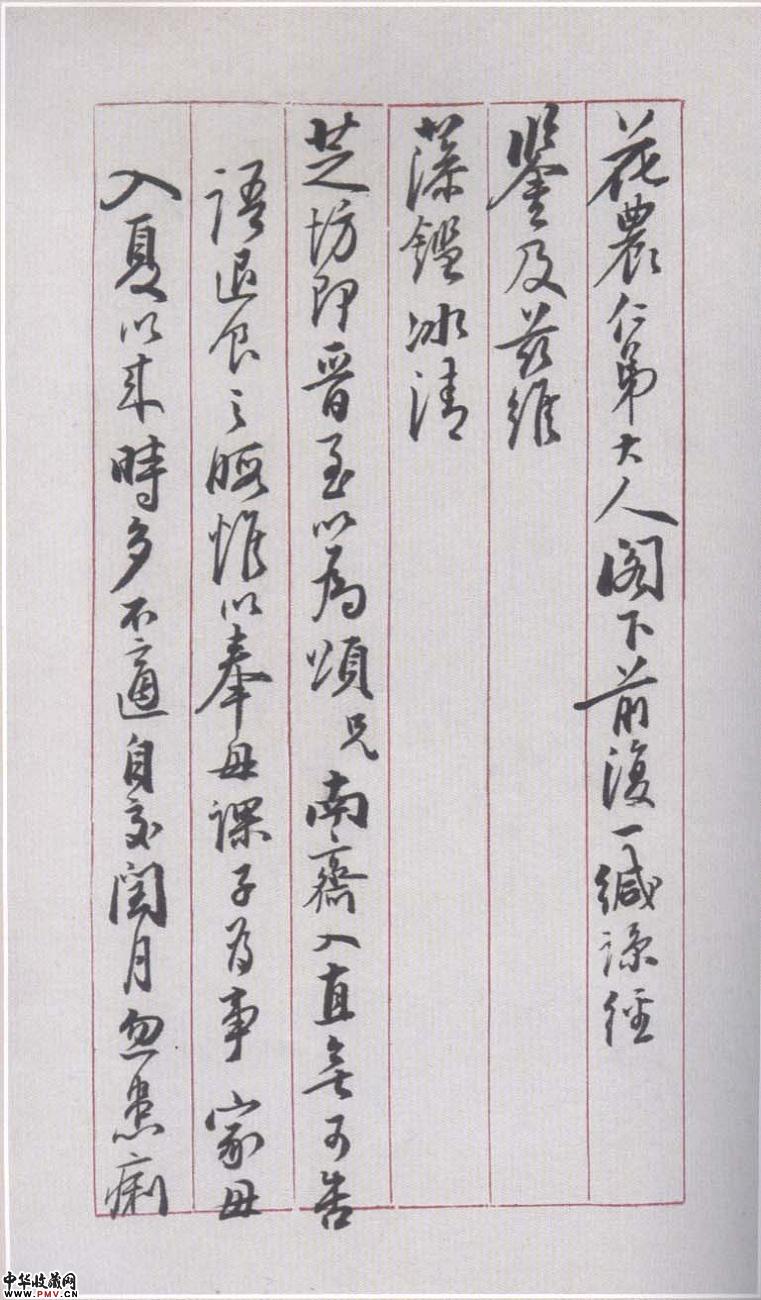 花農仁弟大人閣下前復一緘諒經
鑒及茲維
藻鑑冰清
芝坊即晉至以為頌兄南齋入直無可告
語退食之暇惟以奉母課子為事家母
入夏以來時多不適自交閏月忽患痢
中华收藏网
www.PMV.CN